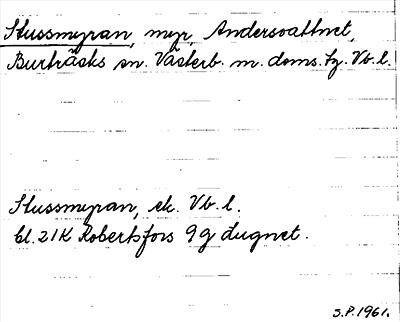 Slussmyran, myr, Andersvattnet,
Burträsks sn. Västerb. m. doms. fg. Vb. l.
Slussmyran, ek. Vb. l.
bl. 21K Robertsfors 9g Lugnet.
S.P. 1961.